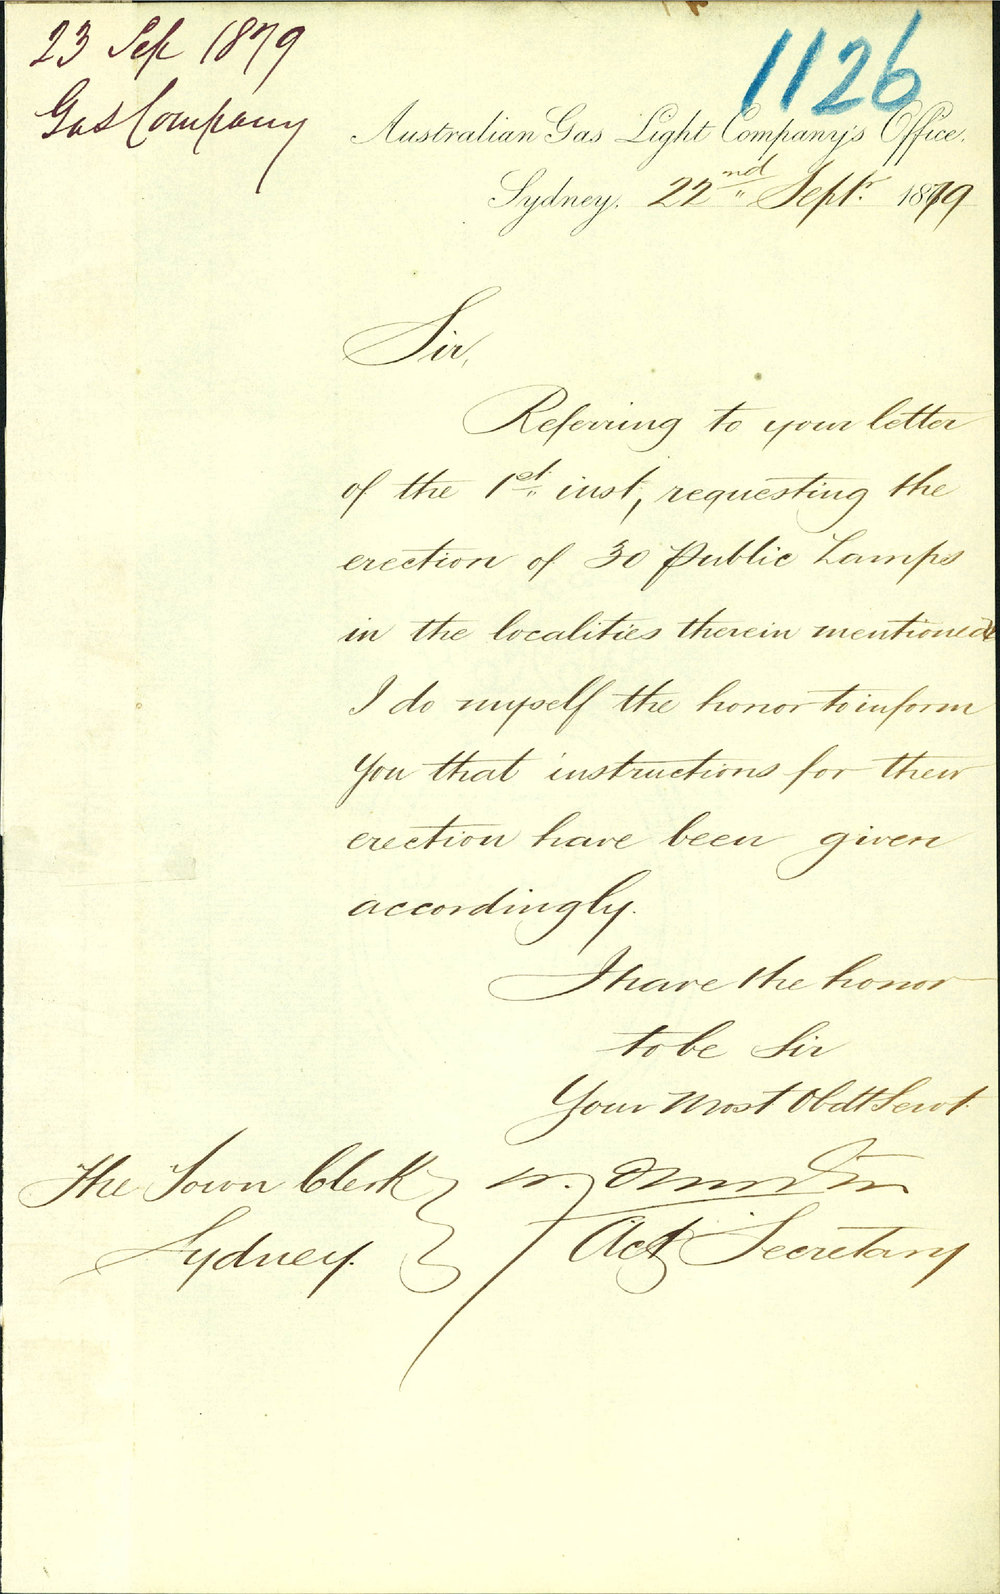 23 Sep 1879
Gas Company
1126
Australian Gas Light Company's Office.
Sydney. 22nd Septr. 1879
Sir,
Referring to your letter
of the 1st inst, requesting the
erection of 30 Public Lamps
in the localities therein mentioned
I do myself the honor to inform
you that instructions for their
erection have been given
accordingly.
I have the honor
to be Sir
Your Most Obdt Servt.
The Town Clerk
Sydney.
Actg Secretary